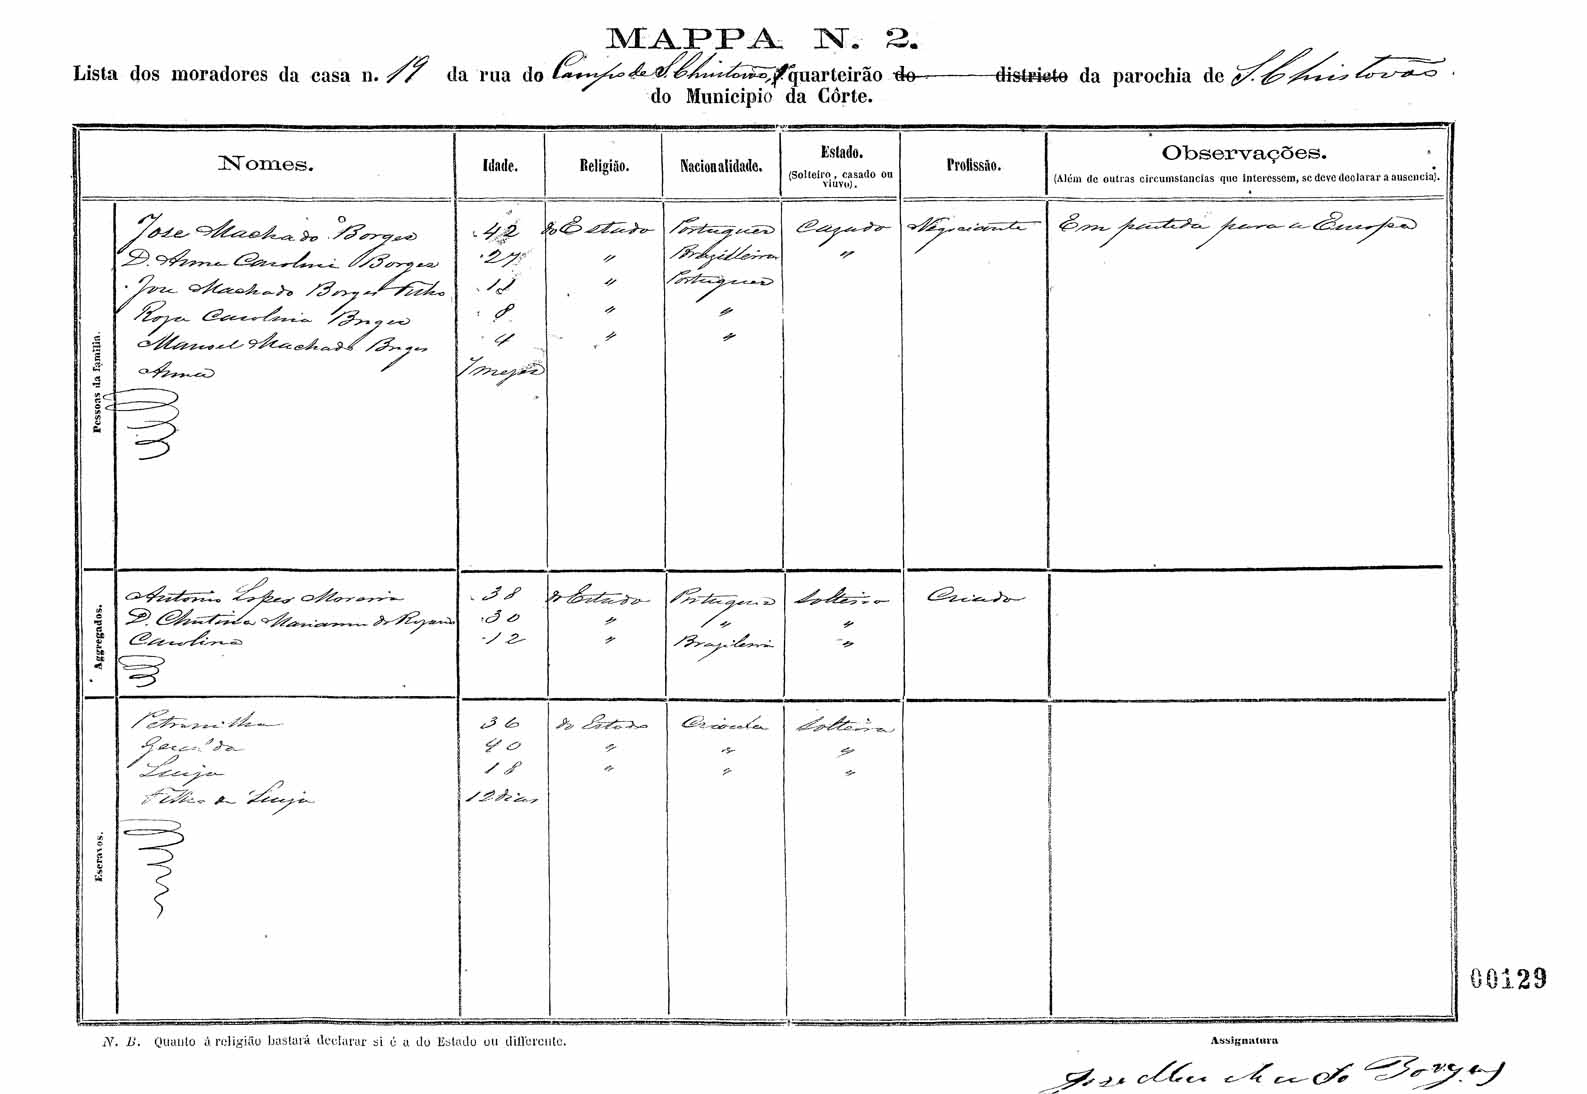 MAPPA N. 2.
Lista dos moradores da casa n. 19 da rua do Campo de S. Christovão, quarteirão do districto da parochia de S. Christovão.
do Municipio da Côrte.
Nomes. Idade. Religião. Nacionalidade. Estado. (Solteiro, casado ou viuvo). Profissão. Observações. (Além de outras circumstancias que interessem, se deve declarar a ausencia).
Pessoas da familia.
Jose Machado Borges 42 do Estado Portuguez Cazado Negociante Em partida para a Europa
D. Anna Carolina Borges 27 " Brazilleira "
Jose Machado Borges Filho 11 " Portuguez
Roza Carolina Borges 8 " "
Manoel Machado Borges 4 " "
Anna 7 mezes
Aggregados.
Antonio Lopes Moreira 38 do Estado Portuguez Solteiro Criado
D. Christina Marianna do 30 " " "
Carolina 12 " Brazileira "
Escravos.
Petronilha 36 do Estado Crioula Solteira
40 " " "
Luiza 18 " " "
Filho de Luiza 12 dias
00129
N. B. Quanto á religião bastará declarar si é a do Estado ou differente.
Assignatura
Jose Machado Borges